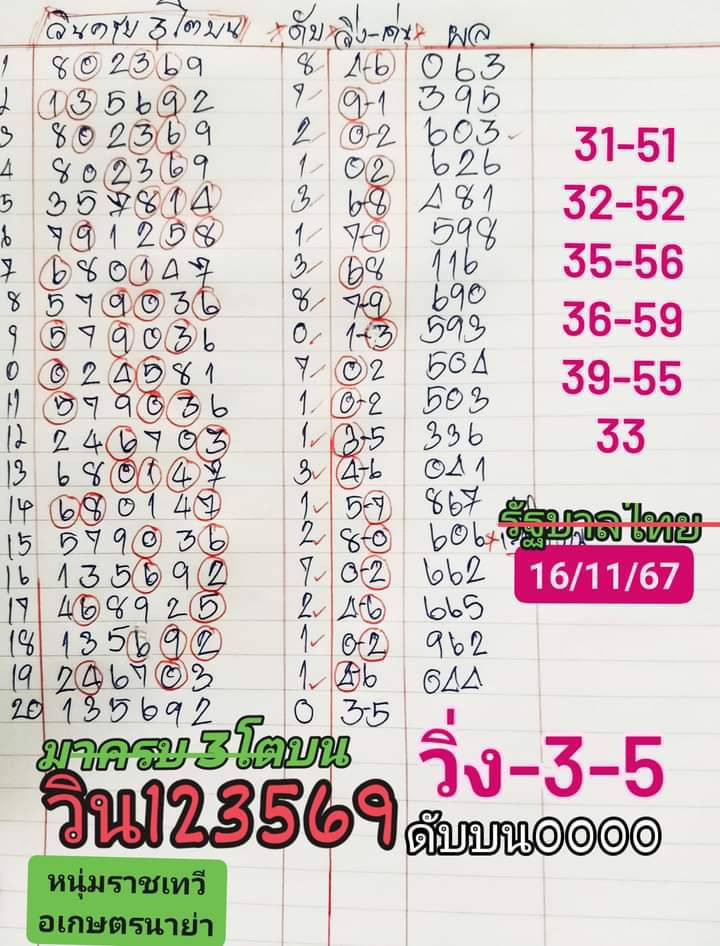 วินครบ 3 โตบน × ดับ × วิ่ง-คู่ × ผล
1 802369 8 4-6 063
2 135692 7 9-1 395
3 802369 2 0-2 603
4 802369 1 02 626
5 357814 3 6-8 481
6 791258 1 7-9 598
7 680147 3 68 116
8 579036 8 7-9 690
9 579036 0 1-3 593
0 024581 7 02 504
11 579036 1 0-2 503
12 246703 1 3-5 336
13 680147 3 4-6 041
14 680147 1 5-7 867
15 579036 2 8-0 606
16 135692 7 0-2 662
17 468925 2 4-6 665
18 135692 1 0-2 962
19 246703 1 46 044
20 135692 0 3-5
31-51
32-52
35-56
36-59
39-55
33
รัฐบาลไทย
16/11/67
มาครบ 3 โตบน
วิน123569
วิ่ง-3-5
ดับบน0000
หนุ่มราชเทวี
อเกษตรนาย่า